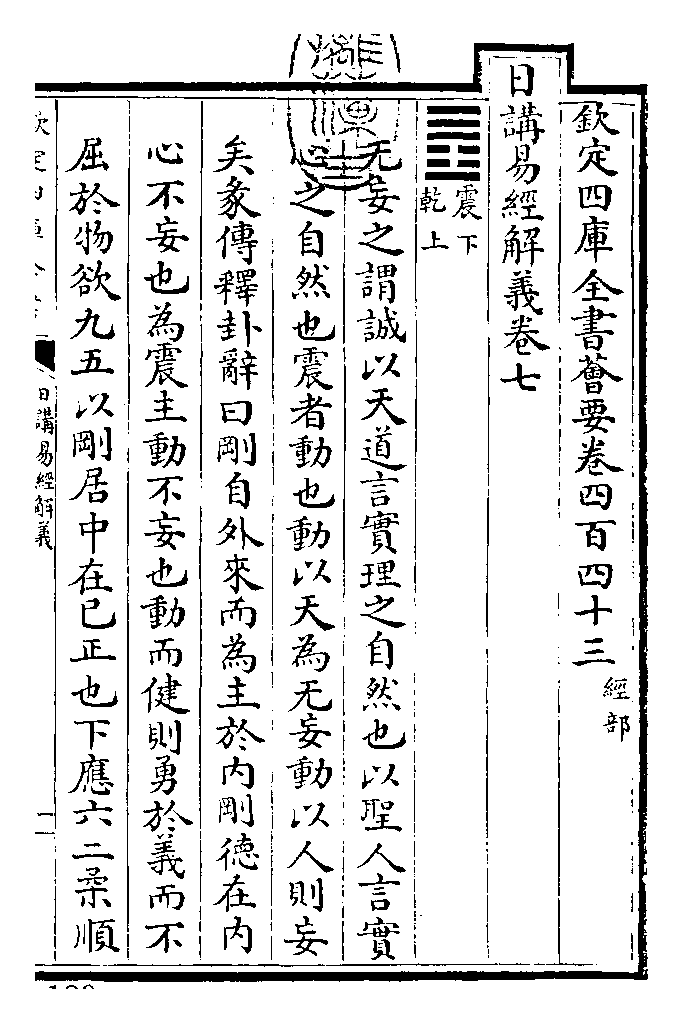 欽定四庫全書薈要卷四百四十三 經部
日講易經解義卷七
震下
乾上
无妄之謂誠以天道言實理之自然也以聖人言實
心之自然也震者動也動以天為无妄動以人則妄
矣彖傳釋卦辭曰剛自外來而為主於内剛德在内
心不妄也為震主動不妄也動而健則勇於義而不
屈於物欲九五以剛居中在已正也下應六二柔順
日講易經解義